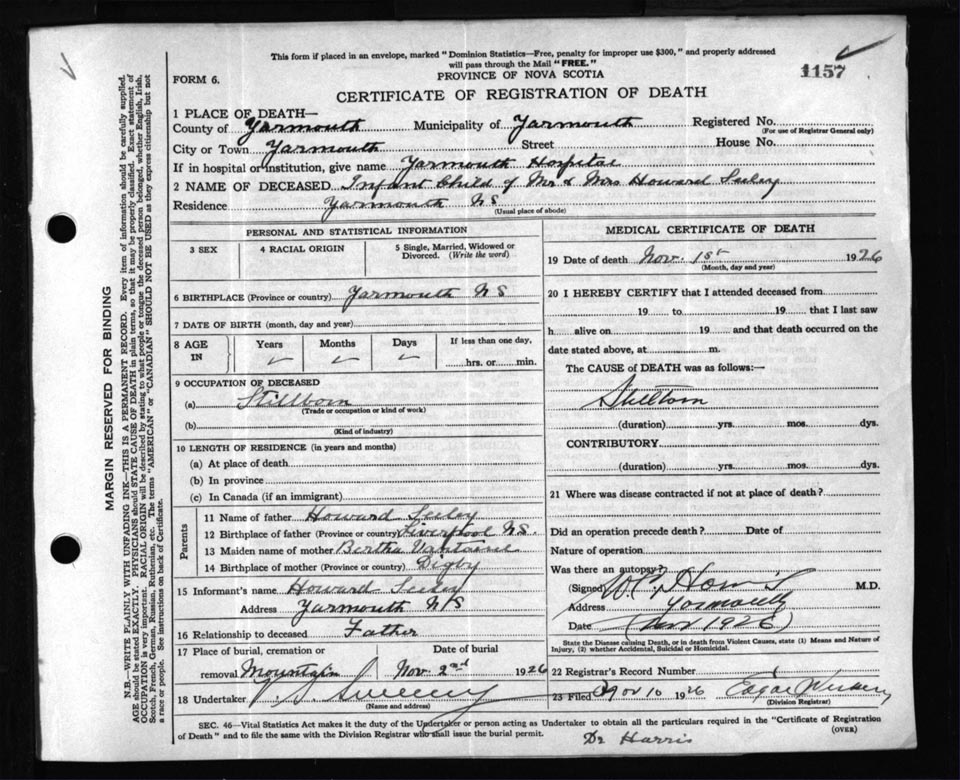 This form if placed in an envelope, marked "Dominion Statistics—Free, penalty for improper use $300," and properly addressed
will pass through the Mail "FREE."
1157
FORM 6.
PROVINCE OF NOVA SCOTIA
CERTIFICATE OF REGISTRATION OF DEATH
1 PLACE OF DEATH—
County of Yarmouth Municipality of Yarmouth Registered No.
(For use of Registrar General only)
City or Town Yarmouth Street House No.
If in hospital or institution, give name Yarmouth Hospital
2 NAME OF DECEASED Infant Child of Mr & Mrs Howard Seeley
Residence Yarmouth NS
(Usual place of abode)
PERSONAL AND STATISTICAL INFORMATION
3 SEX
4 RACIAL ORIGIN
5 Single, Married, Widowed or
Divorced. (Write the word)
6 BIRTHPLACE (Province or country) Yarmouth NS
7 DATE OF BIRTH (month, day and year)
8 AGE
IN
Years
Months
Days
If less than one day,
hrs. or min.
9 OCCUPATION OF DECEASED
(a) Stillborn
(Trade or occupation or kind of work)
(b)
(Kind of industry)
10 LENGTH OF RESIDENCE (in years and months)
(a) At place of death
(b) In province
(c) In Canada (if an immigrant)
Parents
11 Name of father Howard Seeley
12 Birthplace of father (Province or country) Liverpool NS.
13 Maiden name of mother Bertha
14 Birthplace of mother (Province or country) Digby
15 Informant's name Howard Seeley
Address Yarmouth NS
16 Relationship to deceased Father
17 Place of burial, cremation or
removal Mountain
Date of burial
Nov. 2nd 1926
18 Undertaker V. S. Sweeney
(Name and address)
MEDICAL CERTIFICATE OF DEATH
19 Date of death Nov. 1st 1926
(Month, day and year)
20 I HEREBY CERTIFY that I attended deceased from
19 to 19 that I last saw
h alive on 19 and that death occurred on the
date stated above, at m.
The CAUSE of DEATH was as follows:—
Stillborn
(duration) yrs. mos. dys.
CONTRIBUTORY
(duration) yrs. mos. dys.
21 Where was disease contracted if not at place of death?
Did an operation precede death? Date of
Nature of operation
Was there an autopsy?
(Signed) M.D.
Address Yarmouth
Date 1926
State the Disease causing Death, or in death from Violent Causes, state (1) Means and Nature of
Injury, (2) whether Accidental, Suicidal or Homicidal.
22 Registrar's Record Number
23 Filed Nov 10 1926 Edgar
(Division Registrar)
SEC. 46—Vital Statistics Act makes it the duty of the Undertaker or person acting as Undertaker to obtain all the particulars required in the "Certificate of Registration
of Death" and to file the same with the Division Registrar who shall issue the burial permit.
(OVER)
Dr Harris
MARGIN RESERVED FOR BINDING
N.B.—WRITE PLAINLY WITH UNFADING INK—THIS IS A PERMANENT RECORD. Every item of information should be carefully supplied.
AGE should be stated EXACTLY. PHYSICIANS should STATE CAUSE OF DEATH in plain terms, so that it may be properly classified. Exact statement of
OCCUPATION is very important. RACIAL ORIGIN will be described by stating to what people or tongue the deceased person belonged, whether English, Irish,
Scotch, French, German, Russian, Ruthenian, etc. The terms "AMERICAN" or "CANADIAN" SHOULD NOT BE USED as they express citizenship but not
a race or people. See instructions on back of Certificate.